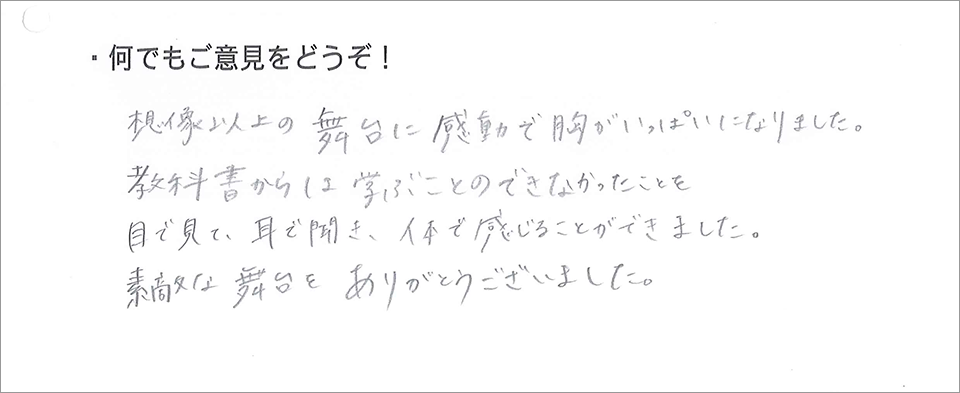 ・何でもご意見をどうぞ！
想像以上の舞台に感動で胸がいっぱいになりました。
教科書からは学ぶことのできなかったことを
目で見て、耳で聞き、体で感じることができました。
素敵な舞台をありがとうございました。